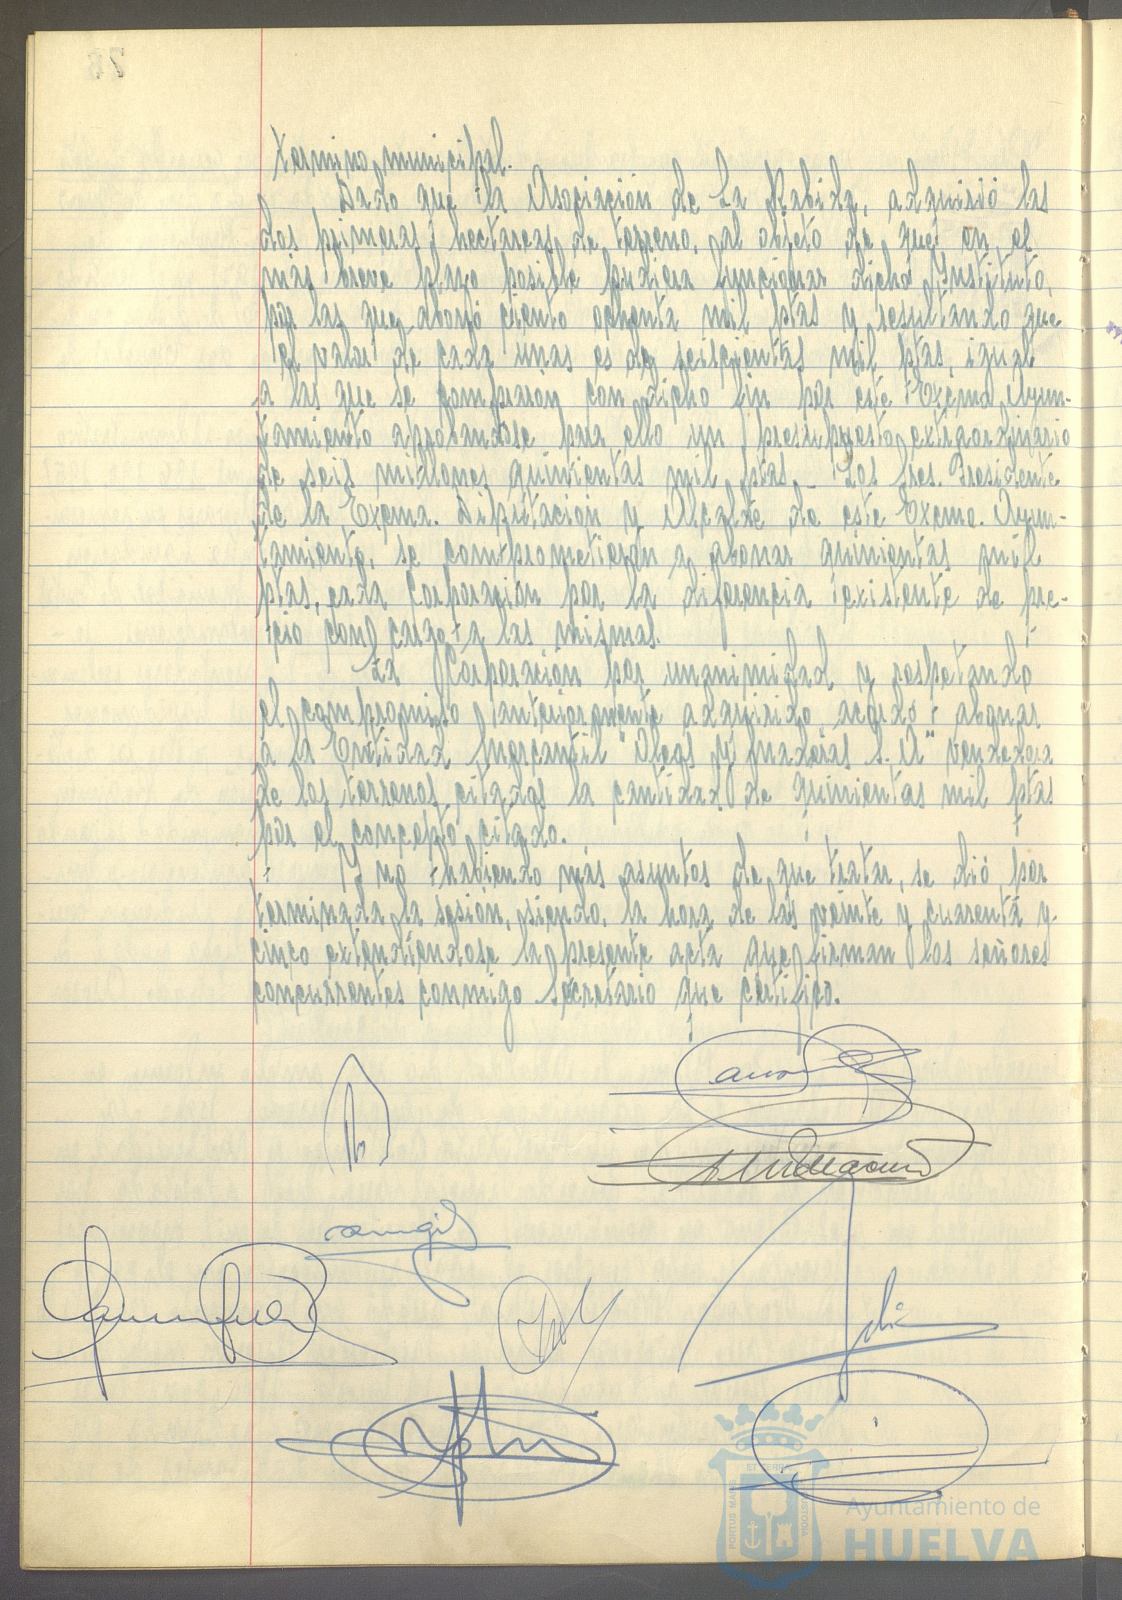 termino municipal.
Dado que la Asociación de La Rabida, adquirió las
dos primeras hectareas de terreno, al objeto de que en el
más breve plazo posible pudiera funcionar dicho Instituto,
por las que abonó ciento ochenta mil ptas y resultando que
el valor de cada unas es de seiscientas mil ptas, igual
a las que se compraron con dicho fin por este Excmo. Ayun-
tamiento aprobandose para ello un presupuesto extraordinario
de seis millones quinientas mil ptas. - Los Sres. Presidente
de la Excma. Diputación y Alcalde de este Excmo. Ayun-
tamiento, se comprometieron a abonar quinientas mil
ptas, cada Corporación por la diferencia existente de pre-
cio con cargo a las mismas.
La Corporación por unanimidad y respetando
el compromiso anteriormente adquirido, acordó abonar
a la Entidad Mercantil "Olcos y Maderas S. A" vendedora
de los terrenos citados la cantidad de quinientas mil ptas
por el concepto citado.
Y no habiendo más asuntos de que tratar, se dió por
terminada la sesión, siendo, la hora de las veinte y cuarenta y
cinco extendiendose la presente acta que firman los señores
concurrentes conmigo Secretario que certifico.
PORTUS MARIS
ET TERRAE
CUSTODIA
Ayuntamiento de
HUELVA